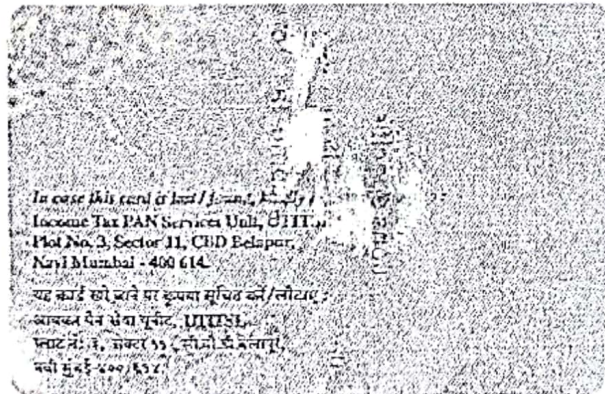 In case this card is lost / found, kindly
Income Tax PAN Services Unit, UTITSL
Plot No. 3, Sector 11, CBD Belapur,
Navi Mumbai - 400 614.
यह कार्ड खो जाने पर कृपया सूचित करें/लौटाएं :
आयकर पैन सेवा यूनीट, UTITSL
प्लाट नं: ३, सेक्टर ११, सी.बी.डी.बेलापूर,
नवी मुंबई-४०० ६१४.